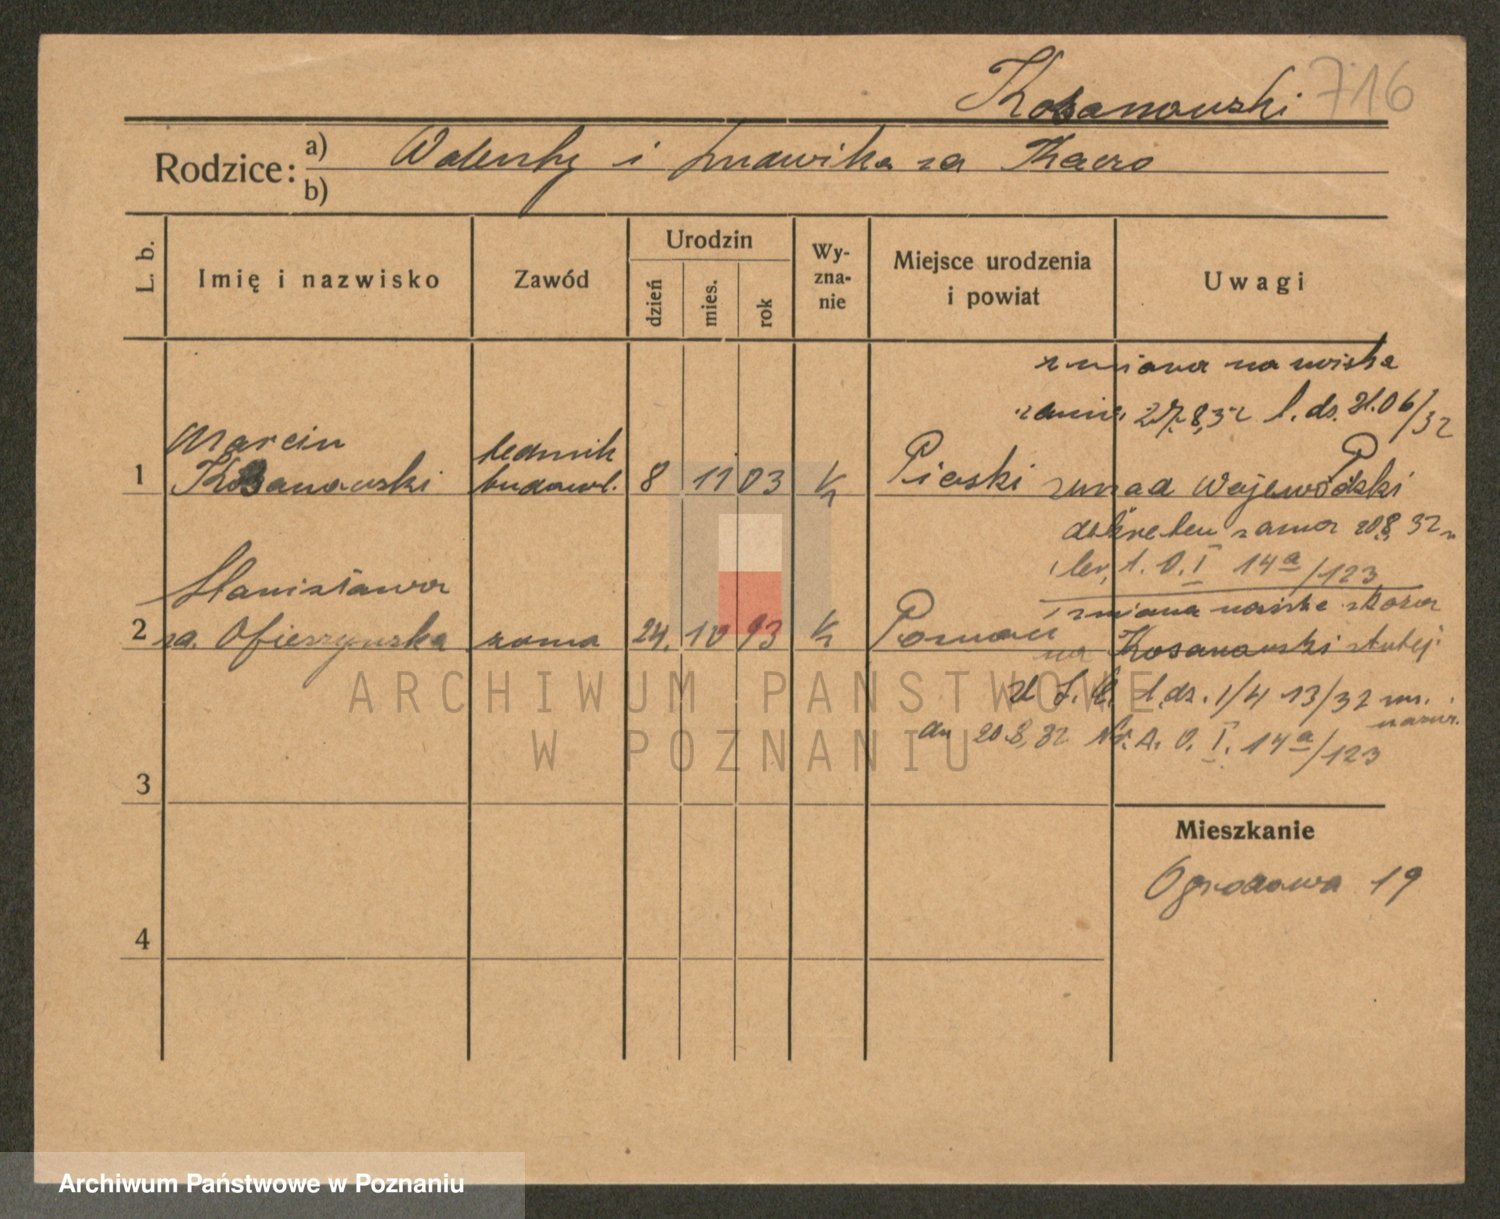 Kosanowski 716
Rodzice: a) Walenty i Ludwika za
b)
L. b.
Imię i nazwisko
Zawód
Urodzin
dzień
mies.
rok
Wy-
zna-
nie
Miejsce urodzenia
i powiat
Uwagi
zmiana nazwiska
27.8.32 l. dz. 21.06/32
Marcin
technik
1 Kosanowski budowl. 8 11 03 K Piaski
Urząd Wojewódzki
20.8.32
I 14a/123
Stanisława
2 za. Ofierzyńska żona 24. 10 93 K Poznań
zmiana
na Kosanowski
l. dz. 1/4 13/32
dn 20.8.32 Nr. A. O. I. 14a/123
3
Mieszkanie
Ogrodowa 19
4
ARCHIWUM PAŃSTWOWE
W POZNANIU
Archiwum Państwowe w Poznaniu